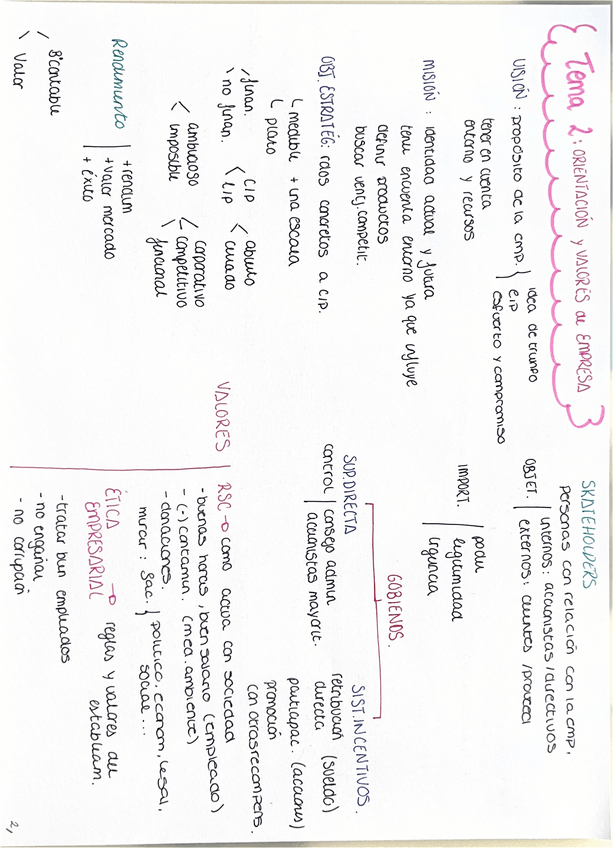 Tema 2: ORIENTACIÓN y VALORES de EMPRESA
VISIÓN: propósito de la emp.
idea de triunfo
e.lp
esfuerzo y compromiso
tener en cuenta
entorno y recursos
MISIÓN: identidad actual y futura
tener encuenta entorno ya que influye
definir productos
buscar vent. competit.
OBJ. ESTRATÉG: retos concretos a c.lp.
medible + una escala
plazo
finan.
no finan.
C.lp
L.lp
abierto
cerrado
ambicioso
imposible
corporativo
competitivo
funcional
Rendimiento
+ rendim
+ valor mercado
+ éxito
Bº contable
Valor
SKATEHOLDERS
personas con relación con la emp,
OBJET.
internos: accionistas/directivos
externos: clientes/proveed
IMPORT.
poder
legitimidad
urgencia
GOBIENOS.
SUP. DIRECTA
control
consejo admin
accionistas mayorit.
SIST. INCENTIVOS.
retribución (sueldo)
directa
participac. (acciones)
promoción
con otras recompens.
VALORES
RSC → como actua con sociedad
- buenas horas, buen salario (empleado)
- (-) contamin. (med. ambiente)
- donaciones.
mirar: sac.
politico, econom, legal,
social...
ÉTICA EMPRESARIAL → reglas y valores que
establecam.
- tratar bien empleados
- no engañar
- no corrupción
2,